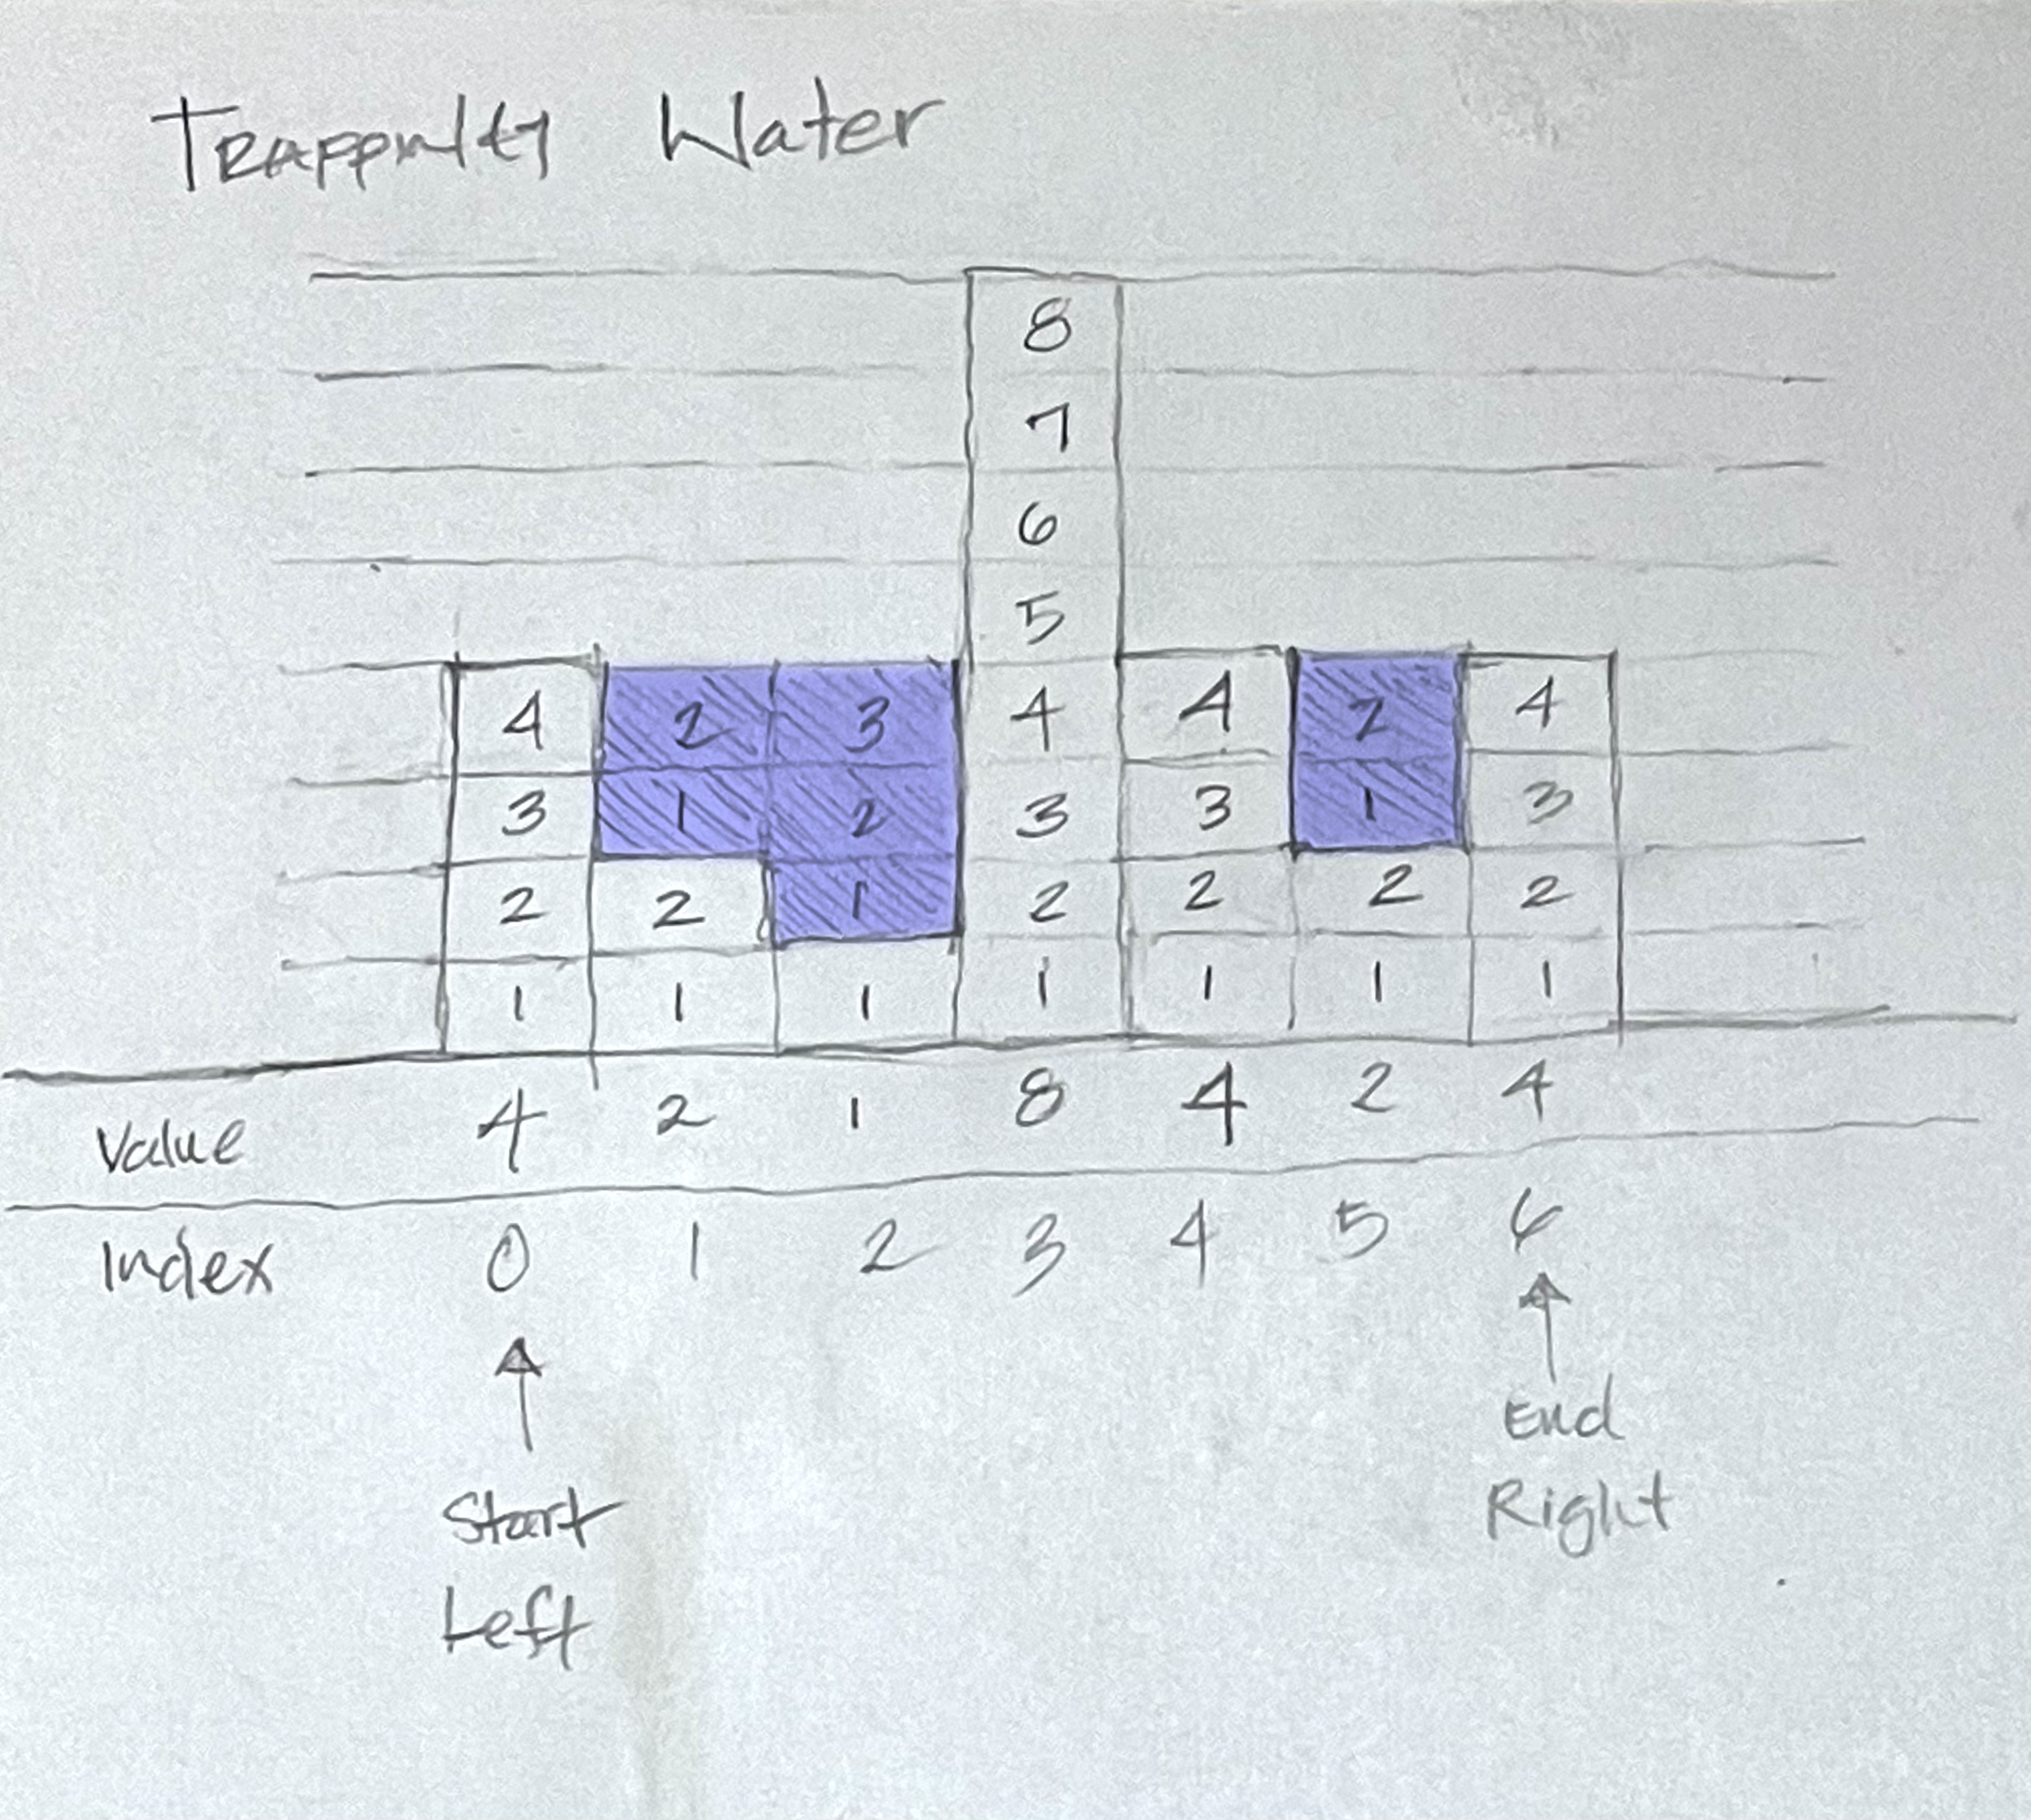 Water
8
7
6
5
4 2 3 4 4 2 4
3 1 2 3 3 1 3
2 2 1 2 2 2 2
1 1 1 1 1 1 1
Value 4 2 1 8 4 2 4
Index 0 1 2 3 4 5 6
Start
Left
End
Right